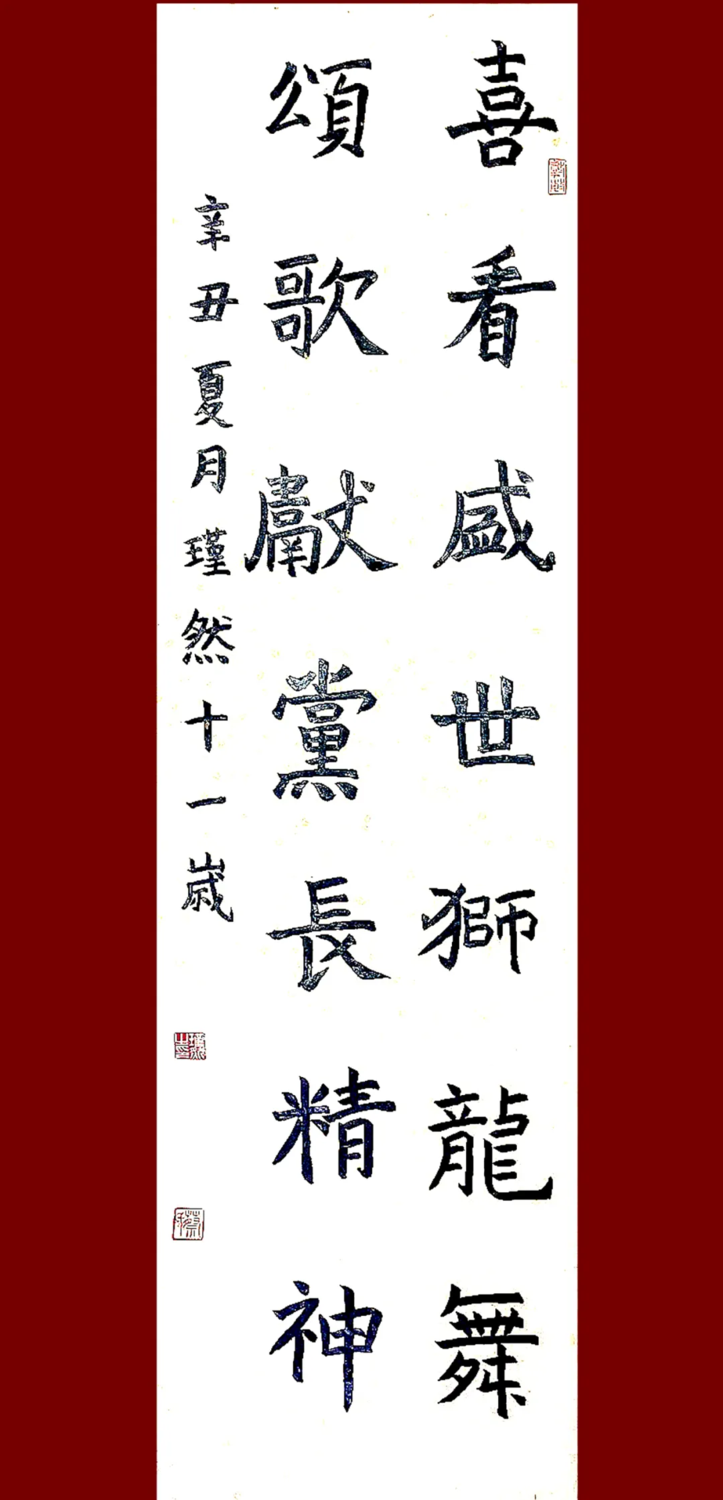 喜看盛世獅龍舞
頌歌獻黨長精神
辛丑夏月瑾然十一歲